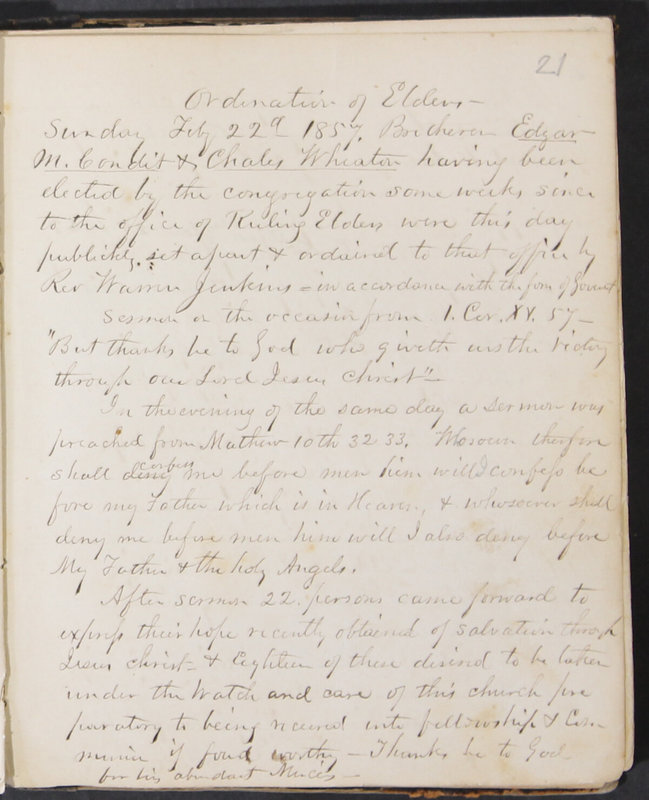 21
Ordination of Elders -
Sunday Feby 22d 1857. Bretheren Edgar
M. Condit & Chales Wheaton having been
elected by the congregation some weeks since
to the office of Ruling Elders were this day
publickly set apart & ordained to that office by
Rev Warren Jenkins = in accordance with the form of Govrnt
Sermon on the occasion from 1. Cor. XV. 57 -
"But thanks be to God who giveth us the victory
through our Lord Jesus Christ" -
In the evening of the same day a Sermon was
preached from Mathew 10th 32 33. Whosoever therefore
confess
shall deny me before men him will I confess be
fore my Father which is in Heaven, & whosoever shall
deny me before men him will I also deny before
My Father & the holy Angels.
After sermon 22. persons came forward to
express their hope recently obtained of salvation through
Jesus Christ - & Eighteen of these desired to be taken
under the Watch and care of this church pre
paratory to being receved into fellowship & Com
munion if foud worthy - Thanks be to God
for his abundant Mercies -